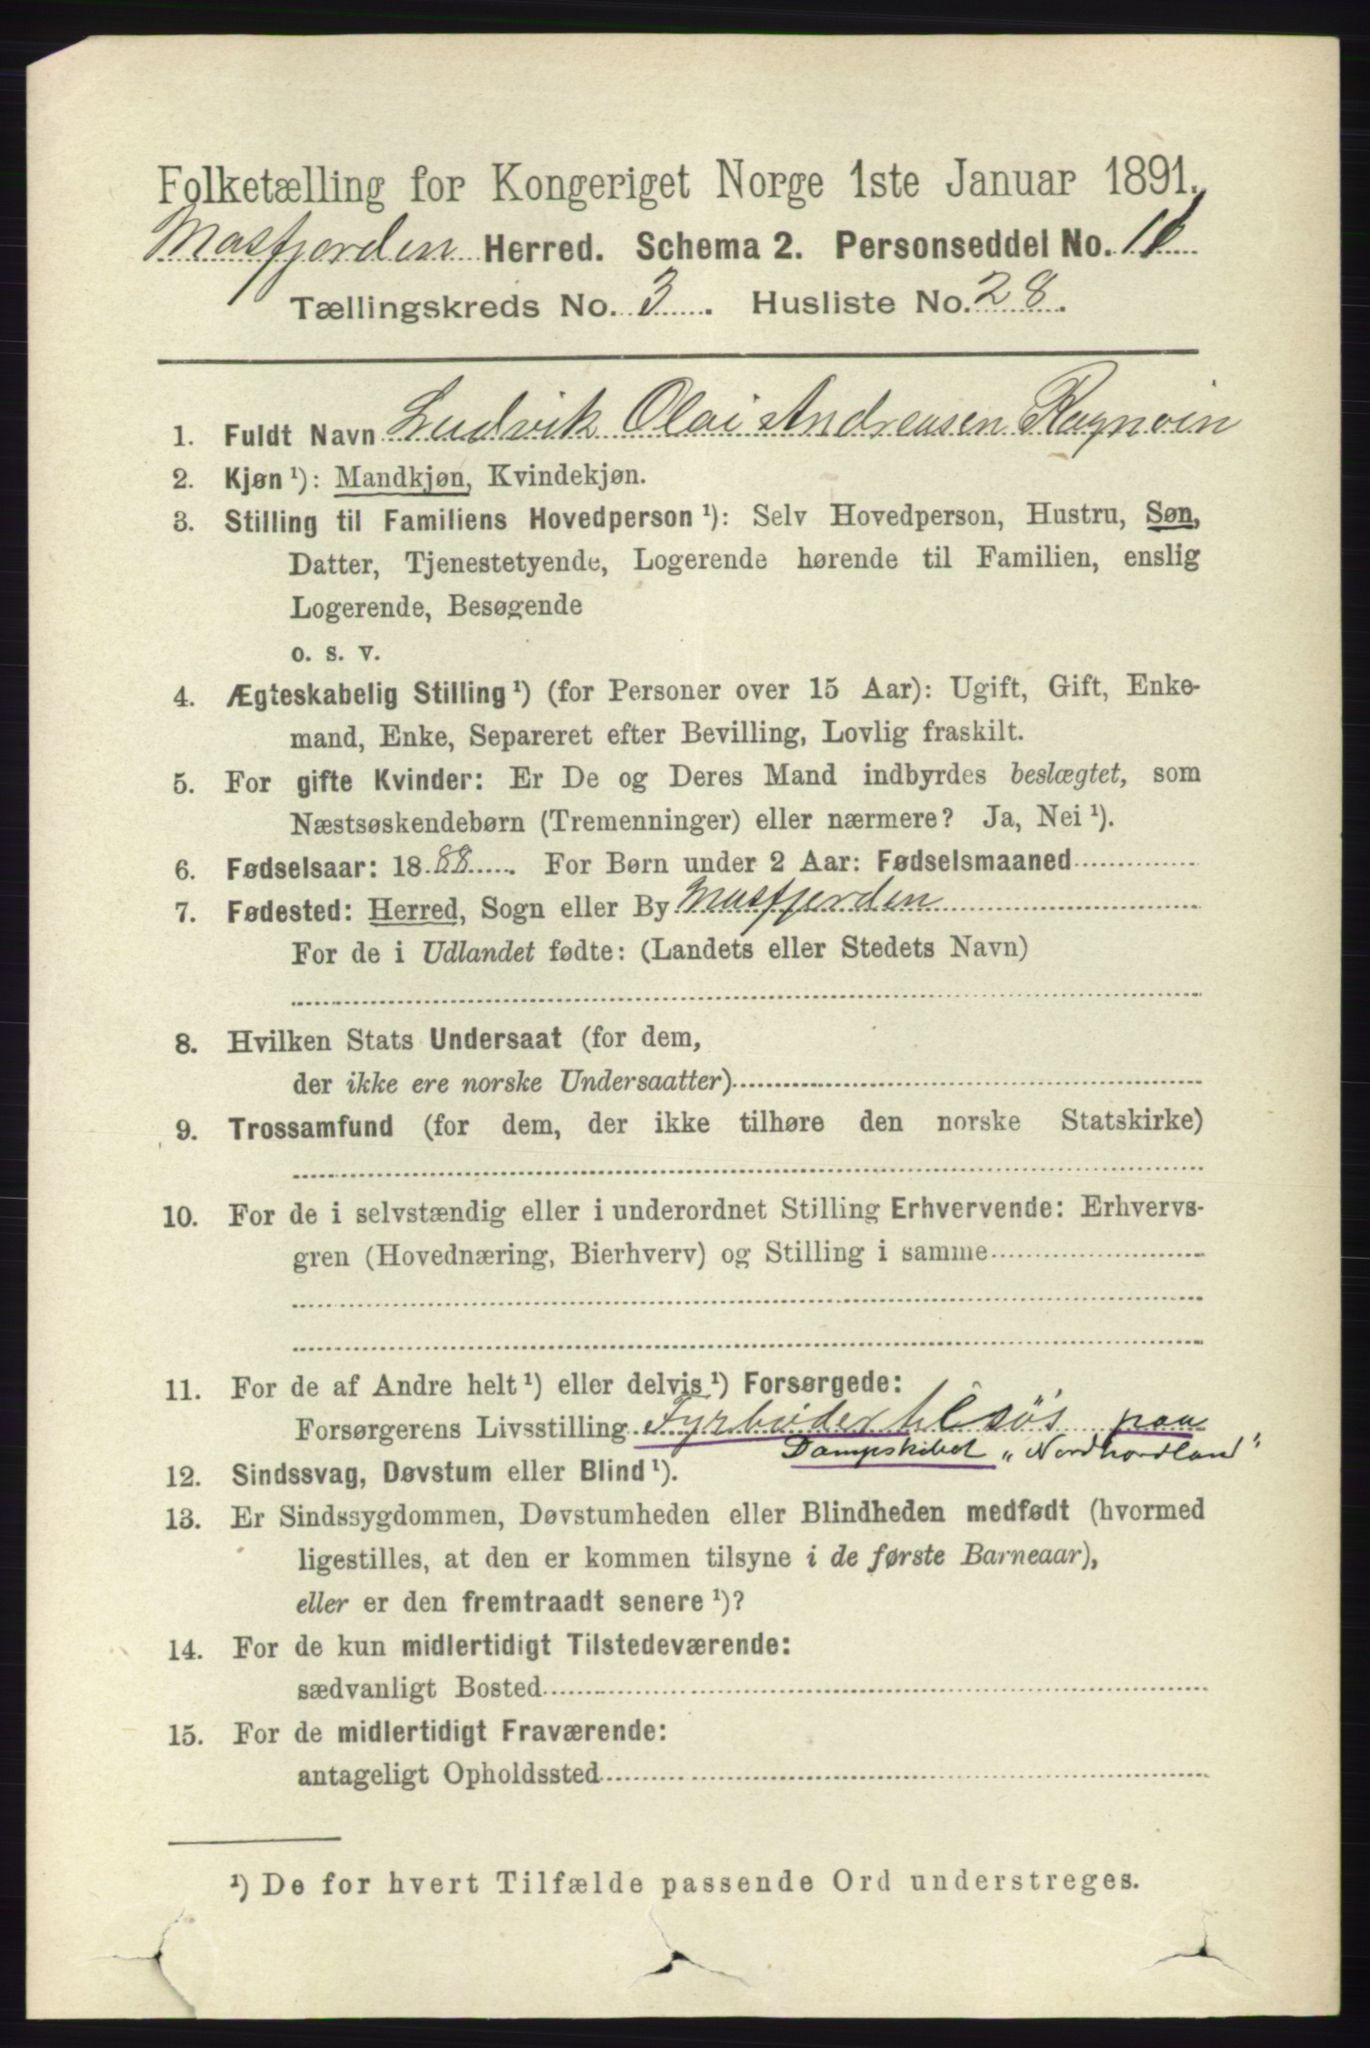 Folketælling for Kongeriget Norge 1ste Januar 1891.
Masfjorden Herred. Schema 2. Personseddel No.
Tællingskreds No. 3. Husliste No. 28.
1. Fuldt Navn Ludvik Olai Andreasen Ragnvin
2. Kjøn ¹): Mandkjøn, Kvindekjøn.
3. Stilling til Familiens Hovedperson ¹): Selv Hovedperson, Hustru, Søn,
Datter, Tjenestetyende, Logerende hørende til Familien, enslig
Logerende, Besøgende
o. s. v.
4. Ægteskabelig Stilling ¹) (for Personer over 15 Aar): Ugift, Gift, Enke-
mand, Enke, Separeret efter Bevilling, Lovlig fraskilt.
5. For gifte Kvinder: Er De og Deres Mand indbyrdes beslægtet, som
Næstsøskendebørn (Tremenninger) eller nærmere? Ja, Nei ¹).
6. Fødselsaar: 1888. For Børn under 2 Aar: Fødselsmaaned
7. Fødested: Herred, Sogn eller By Masfjorden
For de i Udlandet fødte: (Landets eller Stedets Navn)
8. Hvilken Stats Undersaat (for dem,
der ikke ere norske Undersaatter)
9. Trossamfund (for dem, der ikke tilhøre den norske Statskirke)
10. For de i selvstændig eller i underordnet Stilling Erhvervende: Erhvervs-
gren (Hovednæring, Bierhverv) og Stilling i samme
11. For de af Andre helt ¹) eller delvis ¹) Forsørgede:
Forsørgerens Livsstilling Fyrbøder tilsøs paa
Dampskibet „Nordhordland"
12. Sindssvag, Døvstum eller Blind ¹).
13. Er Sindssygdommen, Døvstumheden eller Blindheden medfødt (hvormed
ligestilles, at den er kommen tilsyne i de første Barneaar),
eller er den fremtraadt senere ¹)?
14. For de kun midlertidigt Tilstedeværende:
sædvanligt Bosted
15. For de midlertidigt Fraværende:
antageligt Opholdssted
¹) De for hvert Tilfælde passende Ord understreges.